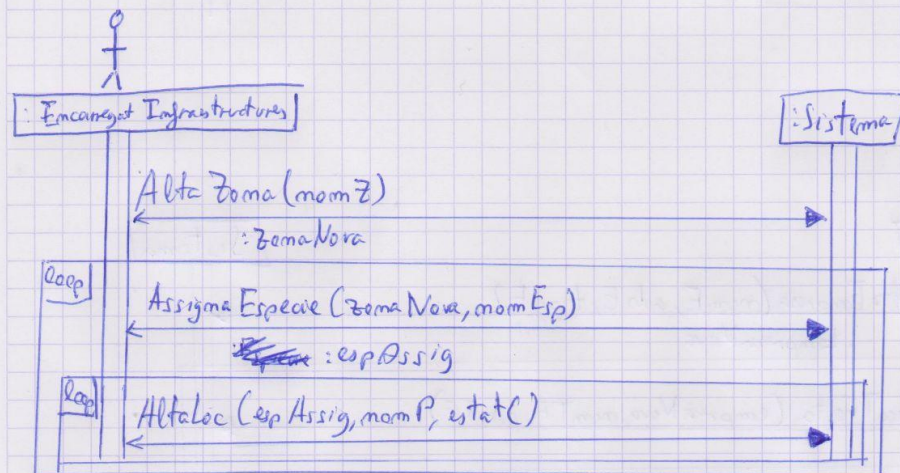 : Encarregat Infrastructures
:Sistema
Alta Zona (nomZ)
:zonaNova
loop
Assigna Especie (zonaNova, nomEsp)
:espAssig
loop
AltaLoc (espAssig, nomP, estatC)